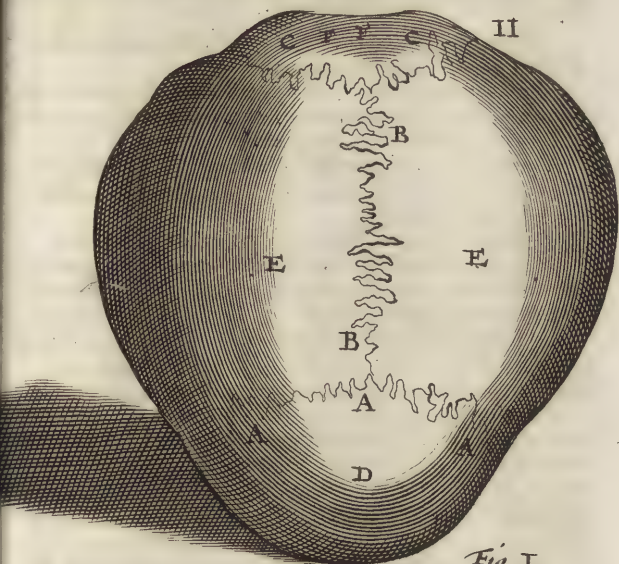 II
C F F C
B
E E
B
A
A A
D
Fig. I